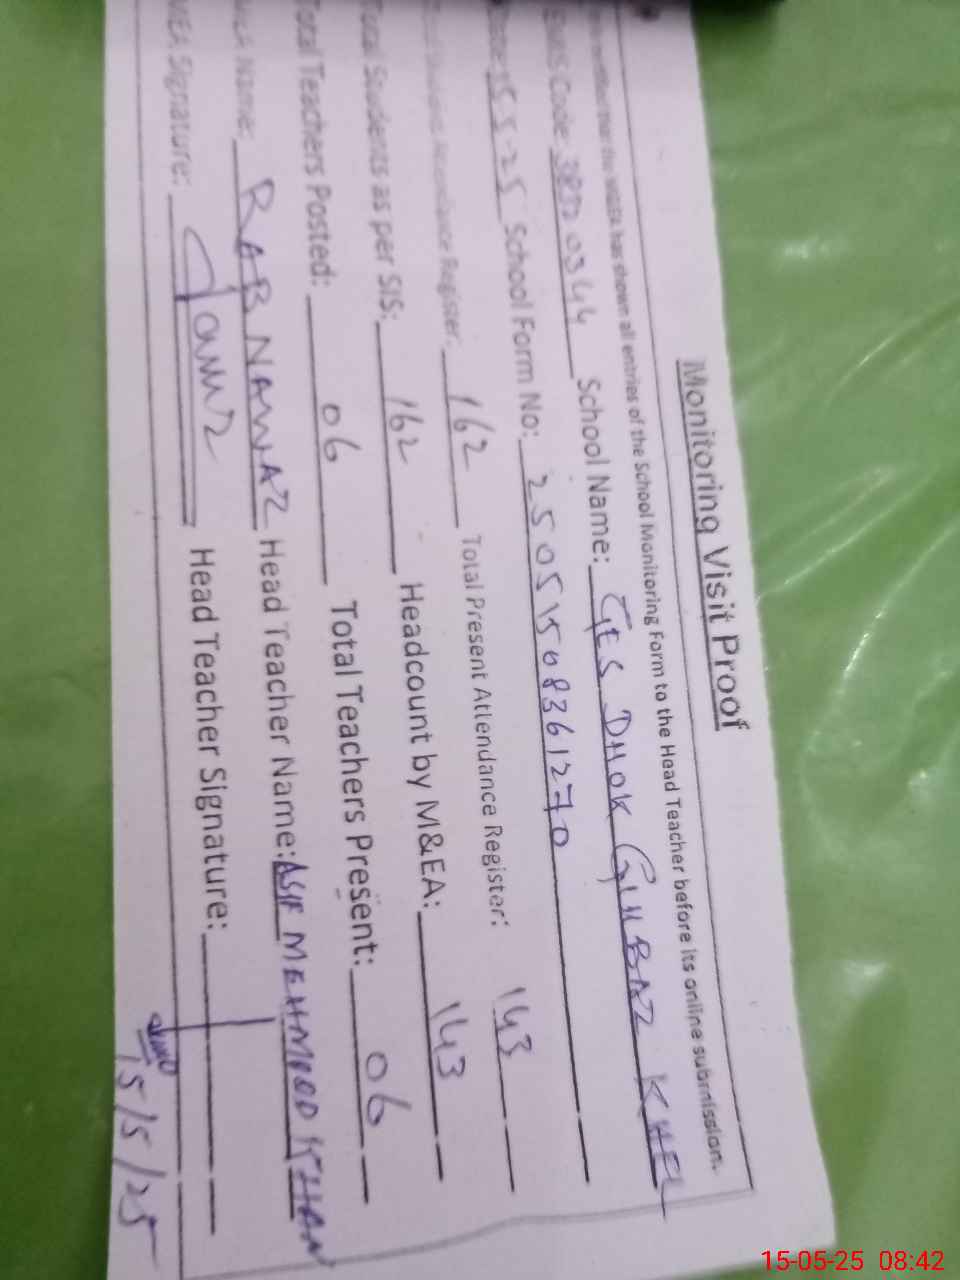 Monitoring Visit Proof
that the MEA has shown all entries of the School Monitoring Form to the Head Teacher before its online submission.
EMIS Code: 38320344 School Name: GES DHOK GULBAZ KHEL
Date: 15-5-25 School Form No: 25051508361270
Attendance Register: 162 Total Present Attendance Register: 143
Total Students as per SIS: 162 Headcount by M&EA: 143
Total Teachers Posted: 06 Total Teachers Present: 06
MEA Name: RAB NAWAZ Head Teacher Name: ASIF MEHMOOD KHAN
MEA Signature: Head Teacher Signature:
15/5/25
15-05-25 08:42